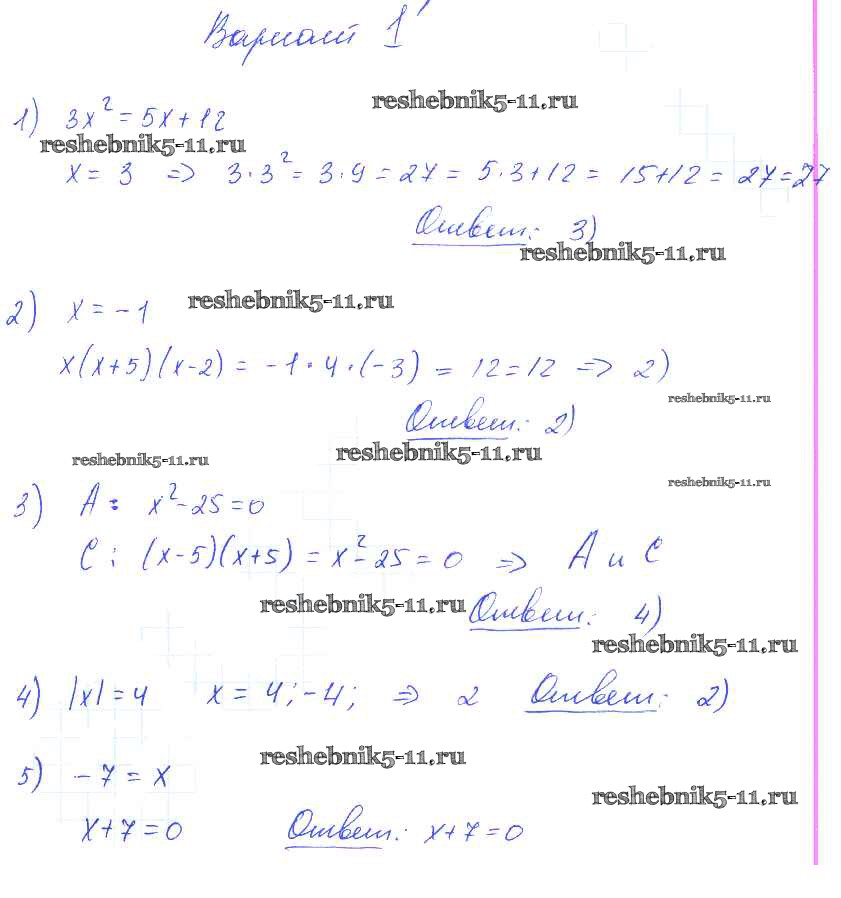 Вариант 1
reshebnik5-11.ru
1) 3x² = 5x + 12
reshebnik5-11.ru
x = 3 => 3·3² = 3·9 = 27 = 5·3+12 = 15+12 = 27 = 27
Ответ: 3)
reshebnik5-11.ru
2) x = -1 reshebnik5-11.ru
x(x+5)(x-2) = -1·4·(-3) = 12 = 12 => 2)
reshebnik5-11.ru
Ответ: 2)
reshebnik5-11.ru reshebnik5-11.ru
reshebnik5-11.ru
3) A: x² - 25 = 0
C: (x-5)(x+5) = x² - 25 = 0 => A и C
reshebnik5-11.ru Ответ: 4)
reshebnik5-11.ru
4) |x| = 4 x = 4; -4; => 2 Ответ: 2)
reshebnik5-11.ru
5) -7 = x
reshebnik5-11.ru
x + 7 = 0 Ответ: x + 7 = 0